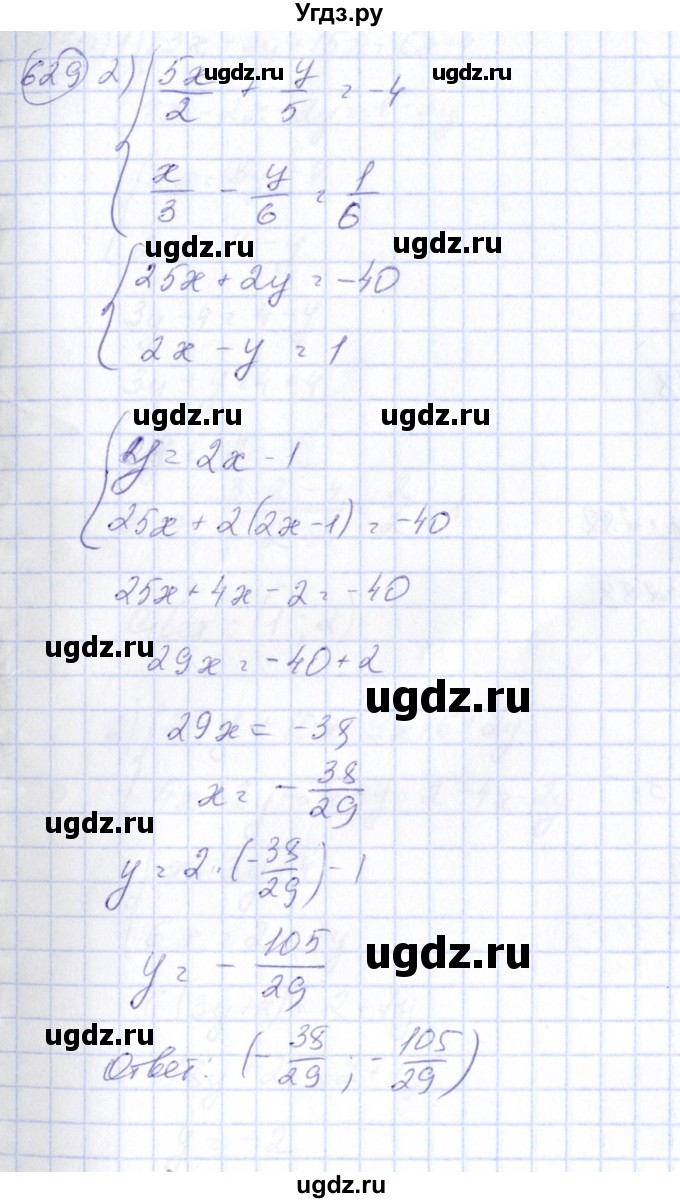 Угдз.ру
629 2) 5x/2 + y/5 = -4
ugdz.ru ugdz.ru
x/3 - y/6 = 1/6
ugdz.ru ugdz.ru
25x + 2y = -40
2x - y = 1
ugdz.ru ugdz.ru
y = 2x - 1
25x + 2(2x-1) = -40
25x + 4x - 2 = -40
ugdz.ru
29x = -40 + 2
ugdz.ru
29x = -38
x = - 38/29
ugdz.ru
y = 2 · (-38/29) - 1
ugdz.ru
y = - 105/29
ugdz.ru
Ответ: (- 38/29 ; - 105/29)
ugdz.ru